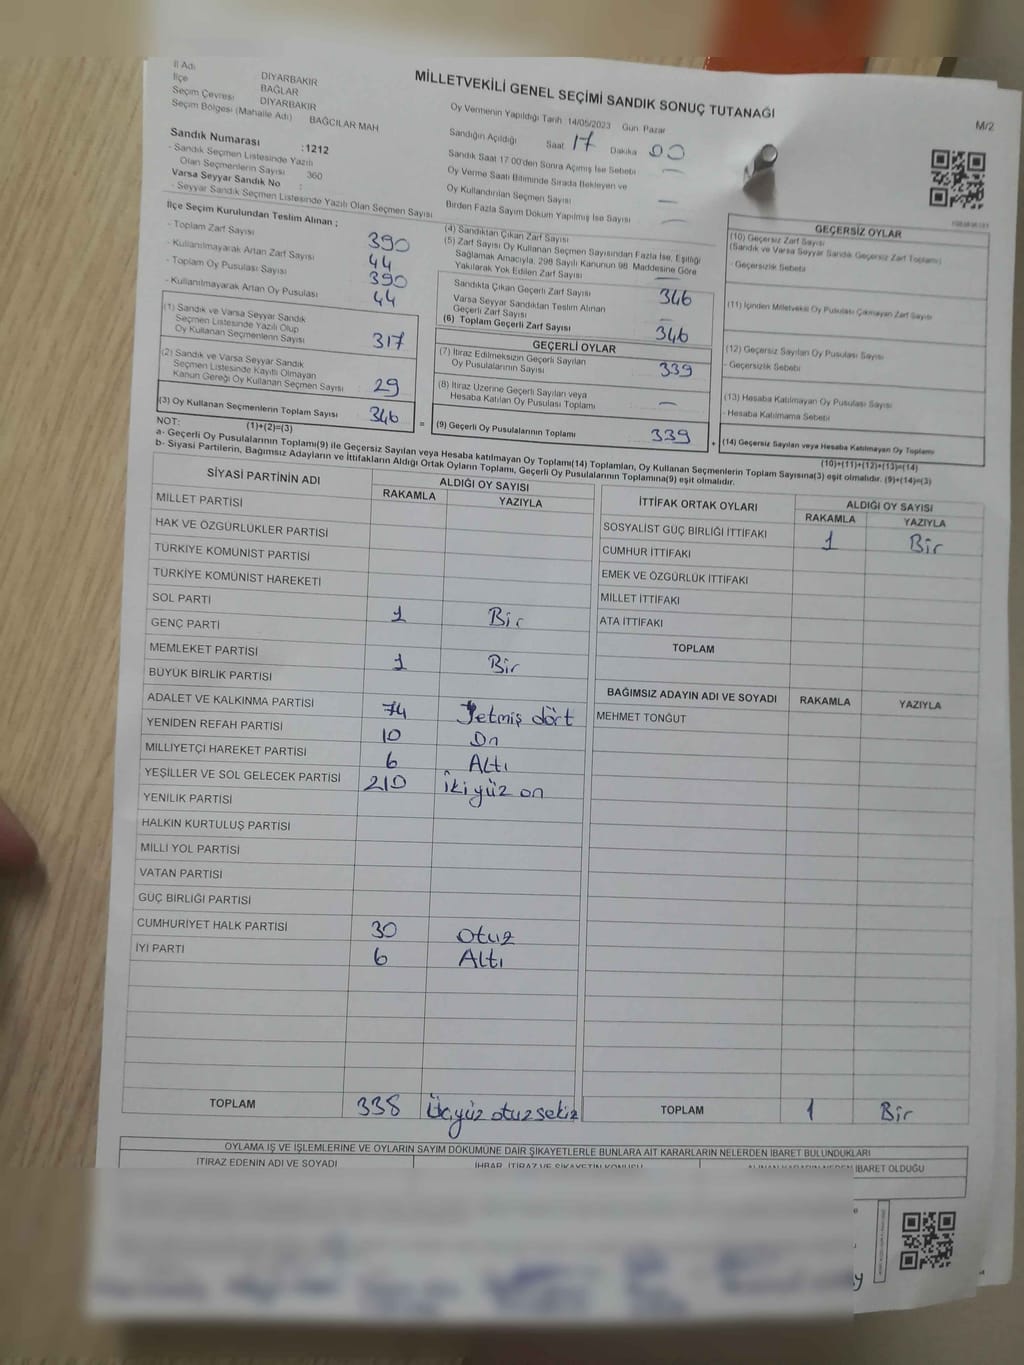 MİLLETVEKİLİ GENEL SEÇİMİ SANDIK SONUÇ TUTANAĞI
M/2
İl Adı
DİYARBAKIR
İlçe
BAĞLAR
Seçim Çevresi
DİYARBAKIR
Seçim Bölgesi (Mahalle Adı) BAĞCILAR MAH
Sandık Numarası :1212
- Sandık Seçmen Listesinde Yazılı
Olan Seçmenlerin Sayısı 360
Varsa Seyyar Sandık No :
- Seyyar Sandık Seçmen Listesinde Yazılı Olan Seçmen Sayısı
Oy Vermenin Yapıldığı Tarih 14/05/2023 Gün Pazar
Sandığın Açıldığı Saat 17 Dakika 00
Sandık Saat 17:00'den Sonra Açımış İse Sebebi —
Oy Verme Saati Bitiminde Sırada Bekleyen ve
Oy Kullandırılan Seçmen Sayısı —
Birden Fazla Sayım Döküm Yapılmış İse Sayısı —
İlçe Seçim Kurulundan Teslim Alınan ;
- Toplam Zarf Sayısı 390
- Kullanılmayarak Artan Zarf Sayısı 44
- Toplam Oy Pusulası Sayısı 390
- Kullanılmayarak Artan Oy Pusulası 44
(1) Sandık ve Varsa Seyyar Sandık
Seçmen Listesinde Yazılı Olup
Oy Kullanan Seçmenlerin Sayısı 317
(2) Sandık ve Varsa Seyyar Sandık
Seçmen Listesinde Kayıtlı Olmayan
Kanun Gereği Oy Kullanan Seçmen Sayısı 29
(3) Oy Kullanan Seçmenlerin Toplam Sayısı 346
(1)+(2)=(3)
(4) Sandıktan Çıkan Zarf Sayısı
(5) Zarf Sayısı Oy Kullanan Seçmen Sayısından Fazla İse, Eşitliği
Sağlamak Amacıyla, 298 Sayılı Kanunun 98. Maddesine Göre
Yakılarak Yok Edilen Zarf Sayısı —
Sandıkta Çıkan Geçerli Zarf Sayısı 346
Varsa Seyyar Sandıktan Teslim Alınan
Geçerli Zarf Sayısı —
(6) Toplam Geçerli Zarf Sayısı 346
GEÇERLİ OYLAR
(7) İtiraz Edilmeksizin Geçerli Sayılan
Oy Pusulalarının Sayısı 339
(8) İtiraz Üzerine Geçerli Sayılan veya
Hesaba Katılan Oy Pusulası Toplamı —
= (9) Geçerli Oy Pusulalarının Toplamı 339 +
GEÇERSİZ OYLAR
(10) Geçersiz Zarf Sayısı
(Sandık ve Varsa Seyyar Sandık Geçersiz Zarf Toplamı)
- Geçersizlik Sebebi
(11) İçinden Milletvekili Oy Pusulası Çıkmayan Zarf Sayısı
(12) Geçersiz Sayılan Oy Pusulası Sayısı
- Geçersizlik Sebebi
(13) Hesaba Katılmayan Oy Pusulası Sayısı
- Hesaba Katılmama Sebebi
(14) Geçersiz Sayılan veya Hesaba Katılmayan Oy Toplamı
(10)+(11)+(12)+(13)=(14)
NOT:
a- Geçerli Oy Pusulalarının Toplamı(9) ile Geçersiz Sayılan veya Hesaba katılmayan Oy Toplamı(14) Toplamları, Oy Kullanan Seçmenlerin Toplam Sayısına(3) eşit olmalıdır. (9)+(14)=(3)
b- Siyasi Partilerin, Bağımsız Adayların ve İttifakların Aldığı Ortak Oyların Toplamı, Geçerli Oy Pusulalarının Toplamına(9) eşit olmalıdır.
SİYASİ PARTİNİN ADI ALDIĞI OY SAYISI
RAKAMLA YAZIYLA
MİLLET PARTİSİ
HAK VE ÖZGÜRLÜKLER PARTİSİ
TÜRKİYE KOMÜNİST PARTİSİ
TÜRKİYE KOMÜNİST HAREKETİ
SOL PARTİ 1 Bir
GENÇ PARTİ
MEMLEKET PARTİSİ 1 Bir
BÜYÜK BİRLİK PARTİSİ
ADALET VE KALKINMA PARTİSİ 74 Yetmiş dört
YENİDEN REFAH PARTİSİ 10 On
MİLLİYETÇİ HAREKET PARTİSİ 6 Altı
YEŞİLLER VE SOL GELECEK PARTİSİ 210 İkiyüz on
YENİLİK PARTİSİ
HALKIN KURTULUŞ PARTİSİ
MİLLİ YOL PARTİSİ
VATAN PARTİSİ
GÜÇ BİRLİĞİ PARTİSİ
CUMHURİYET HALK PARTİSİ 30 Otuz
İYİ PARTİ 6 Altı
TOPLAM 338 Üçyüz otuz sekiz
İTTİFAK ORTAK OYLARI ALDIĞI OY SAYISI
RAKAMLA YAZIYLA
SOSYALİST GÜÇ BİRLİĞİ İTTİFAKI 1 Bir
CUMHUR İTTİFAKI
EMEK VE ÖZGÜRLÜK İTTİFAKI
MİLLET İTTİFAKI
ATA İTTİFAKI
TOPLAM
BAĞIMSIZ ADAYIN ADI VE SOYADI RAKAMLA YAZIYLA
MEHMET TONĞUT
TOPLAM 1 Bir
OYLAMA İŞ VE İŞLEMLERİNE VE OYLARIN SAYIM DÖKÜMÜNE DAİR ŞİKAYETLERLE BUNLARA AİT KARARLARIN NELERDEN İBARET BULUNDUKLARI
İTİRAZ EDENİN ADI VE SOYADI
İHBAR, İTİRAZ VE ŞİKAYETİN KONUSU
ALINAN KARARIN NEDEN İBARET OLDUĞU